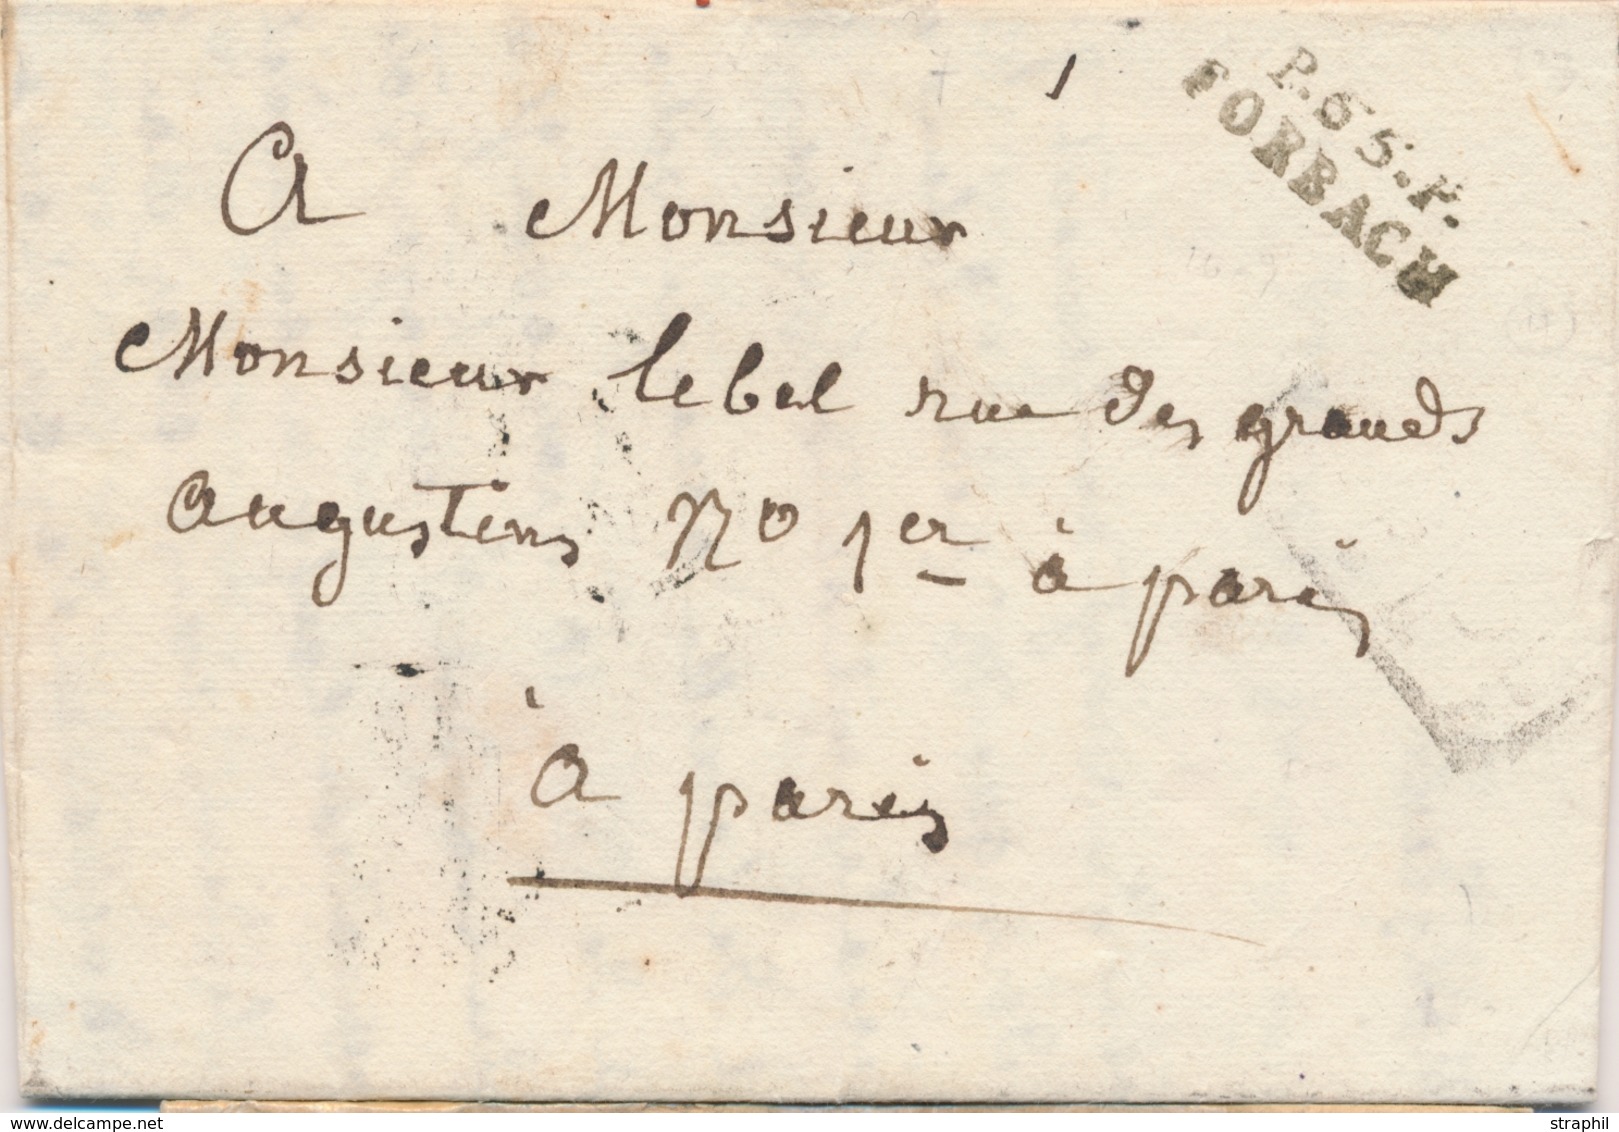 P.55.P.
FORBACH
A Monsieur
Monsieur lebel rue des grands
augustins no 1er à paris
à paris
www.delcampe.net
straphil